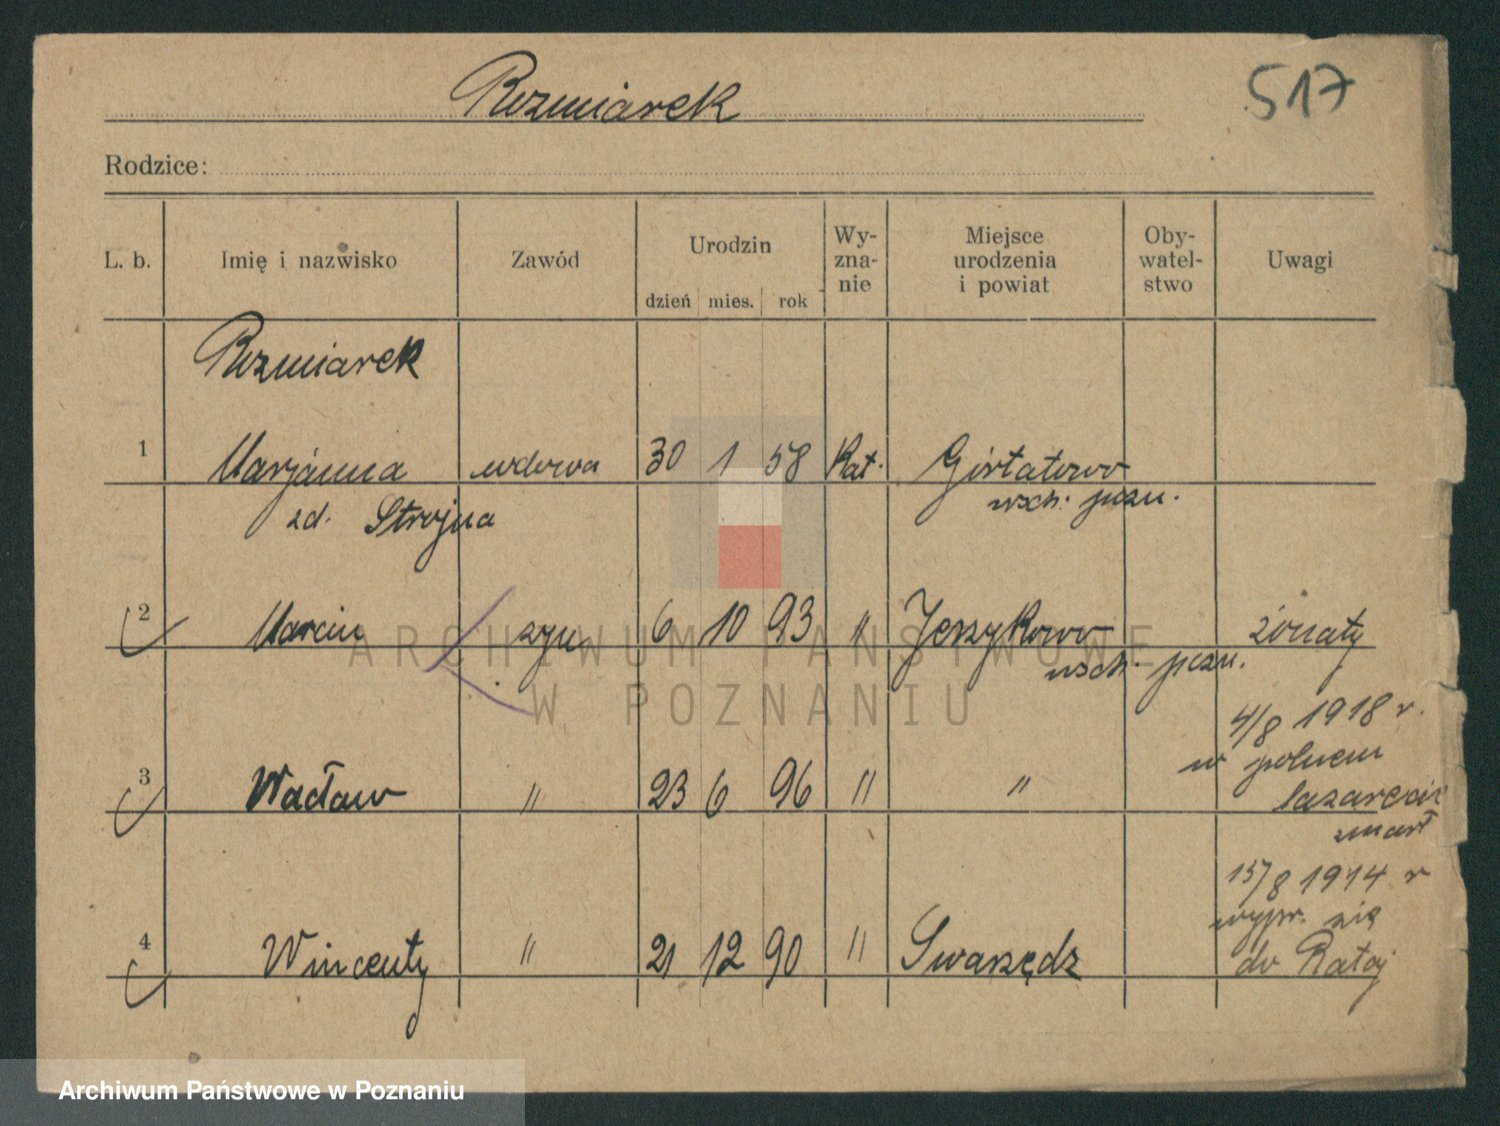 Rozmiarek
517
Rodzice:
L. b.
Imię i nazwisko
Zawód
Urodzin
dzień mies. rok
Wy-
zna-
nie
Miejsce
urodzenia
i powiat
Oby-
watel-
stwo
Uwagi
Rozmiarek
1 Marjanna wdowa 30 1 58 Kat. Górtatowo
zd. Strojna wsch. pozn.
2 Marcin syn 6 10 93 " Jerzykowo żonaty
wsch. pozn.
4/8 1918 r.
w polnem
3 Wacław " 23 6 96 " " lazarecie
zmarł
15/8 1914 r
wypr. się
4 Wincenty " 21 12 90 " Swarzędz do Rataj
ARCHIWUM PAŃSTWOWE
W POZNANIU
Archiwum Państwowe w Poznaniu